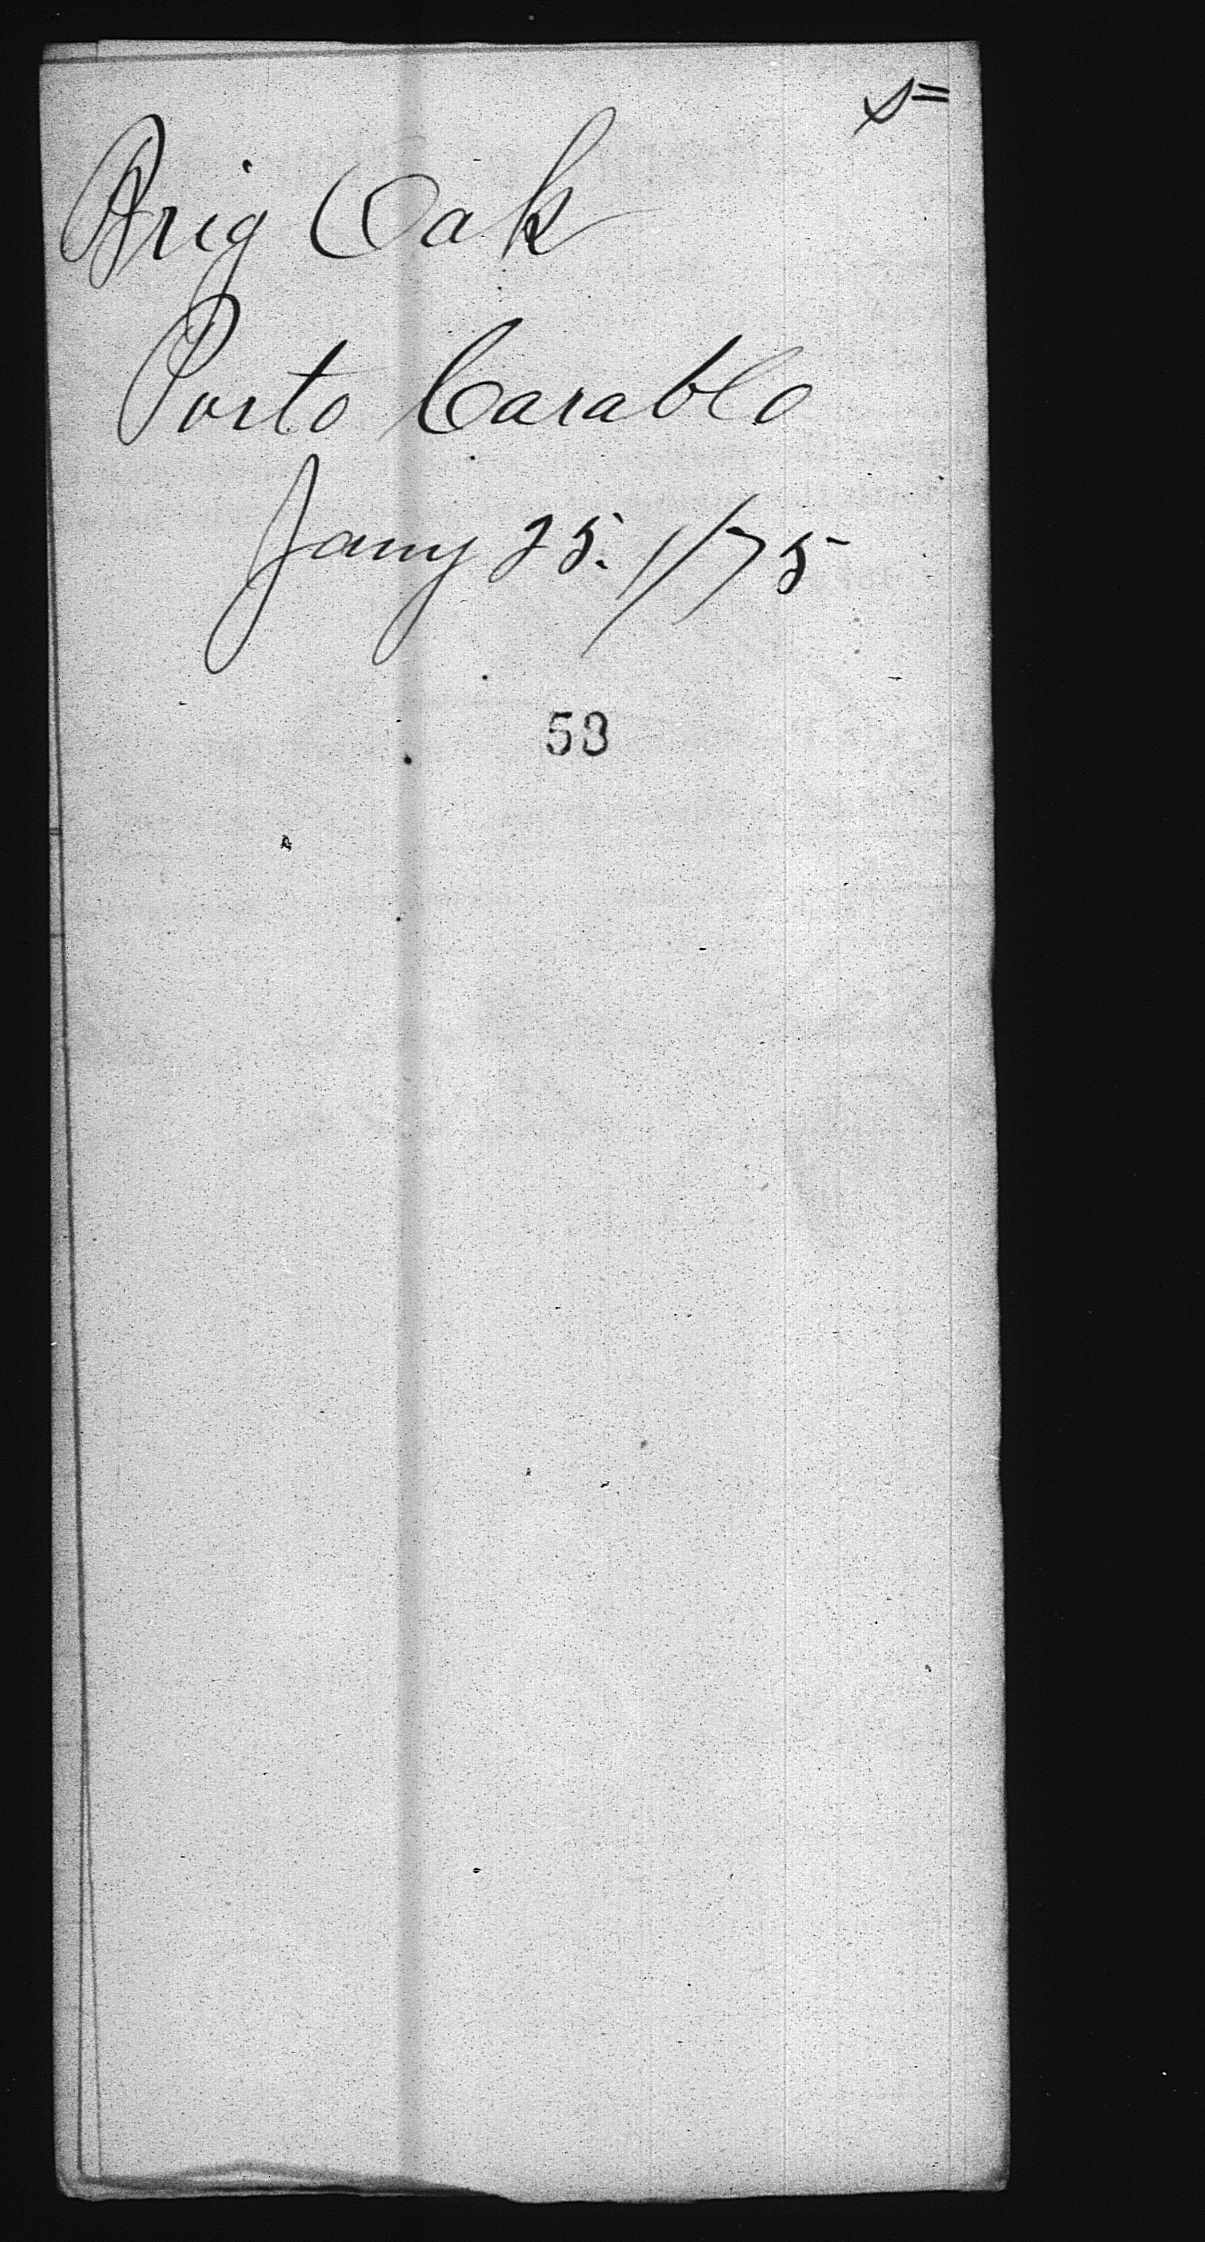 Brig Oak
Porto Carablo
Jany 25. 1/75
53